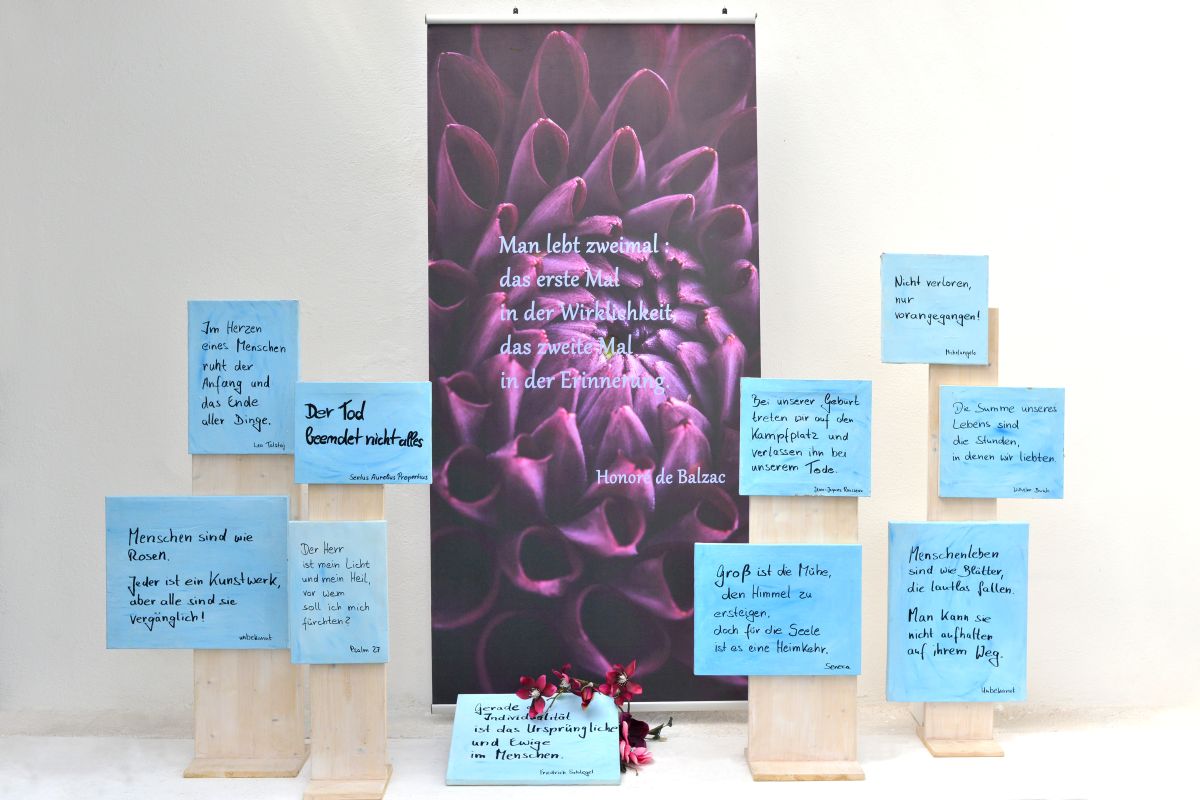 Man lebt zweimal :
das erste Mal
in der Wirklichkeit,
das zweite Mal
in der Erinnerung.
Honoré de Balzac
Im Herzen
eines Menschen
ruht der
Anfang und
das Ende
aller Dinge.
Leo Tolstoj
Der Tod
beendet nicht alles
Sextus Aurelius Propertius
Menschen sind wie
Rosen.
Jeder ist ein Kunstwerk,
aber alle sind sie
vergänglich!
unbekannt
Der Herr
ist mein Licht
und mein Heil,
vor wem
soll ich mich
fürchten?
Psalm 27
Gerade
Individualität
ist das Ursprüngliche
und Ewige
im Menschen.
Friedrich Schlegel
Bei unserer Geburt
treten wir auf den
Kampfplatz und
verlassen ihn bei
unserem Tode.
Jean-Jaques Rousseau
Groß ist die Mühe,
den Himmel zu
ersteigen,
doch für die Seele
ist es eine Heimkehr.
Seneca
Nicht verloren,
nur
vorangegangen!
Michelangelo
Die Summe unseres
Lebens sind
die Stunden,
in denen wir liebten.
Wilhelm Busch
Menschenleben
sind wie Blätter,
die lautlos fallen.
Man kann sie
nicht aufhalten
auf ihrem Weg.
Unbekannt